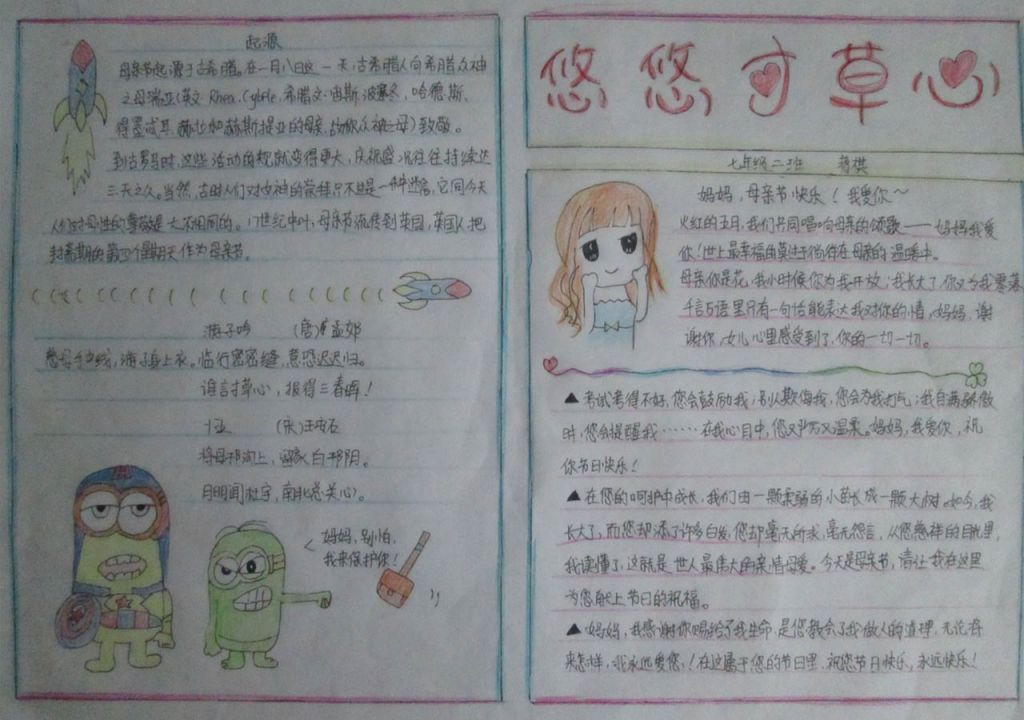 起源
母亲节起源于古希腊。在一月八日这一天,古希腊人向希腊众神
之母瑞亚(英文:Rhea、Cybele,希腊文:宙斯、波塞冬、哈德斯、
得墨忒耳、赫拉和赫斯提亚的母亲,故称众神之母)致敬。
到古罗马时,这些活动的规就变得更大,庆祝盛况往往持续达
三天之久。当然,古时人们对女神的崇拜只不过是一种迷信,它同今天
人们对母性的尊敬是大不相同的。17世纪中叶,母亲节流传到英国,英国人把
封斋期的第四个星期天作为母亲节。
游子吟 (唐)孟郊
慈母手中线,游子身上衣。临行密密缝,意恐迟迟归。
谁言寸草心,报得三春晖!
十五 (宋)王安石
将母邗沟上,留家白邗阴。
月明闻杜宇,南北总关心。
妈妈,别怕,
我来保护你!
悠悠寸草心
七年级二班
妈妈,母亲节快乐!我爱你~
火红的五月,我们共同唱响母亲的颂歌——妈妈我爱
你!世上最幸福的莫过于徜徉在母亲的温暖中。
母亲你是花,我小时候你为我开放;我长大了,你又为我零落
千言万语里只有一句话能表达我对你的情,妈妈,谢
谢你,女儿心里感受到了,你的一切一切。
▲考试考得不好,您会鼓励我;别人欺侮我,您会为我打气;我自满骄傲
时,您会提醒我……在我心目中,您又严厉又温柔。妈妈,我爱你,祝
你节日快乐!
▲在您的呵护中成长,我们由一颗柔弱的小苗长成一颗大树。如今,我
长大了,而您却添了许多白发,您却毫无所求,毫无怨言,从您慈祥的目光里,
我读懂了,这就是世人最伟大的亲情母爱。今天是母亲节,请让我在这里
为您献上节日的祝福。
▲妈妈,我感谢你赐给了我生命,是您教会了我做人的道理,无论将
来怎样,我永远爱您!在这属于您的节日里,祝您节日快乐,永远快乐!